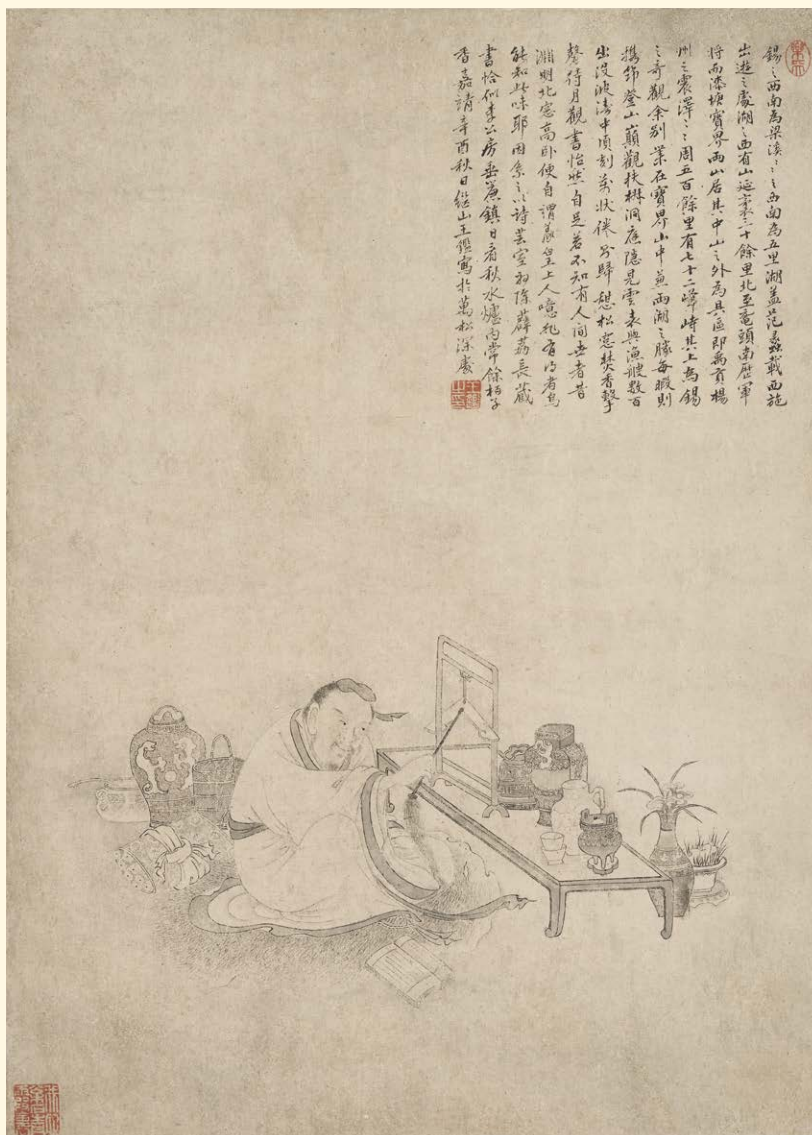 錫之西南為梁溪〻之西南為五里湖蓋范蠡載西施
出遊之處湖之西有山延袤三十餘里北至黿頭南歷軍
將而漆塘寶界兩山居其中山之外為具區即禹貢楊
州之震澤〻周五百餘里有七十二峰峙其上為錫
之奇觀余別業在寶界山中兼兩湖之勝每暇則
攜筇登山巔觀洞庭隱見雲表與漁艘數百
出没波濤中頃刻萬狀歸憩松窓焚香擊
磬待月觀書怡然自足若不知有人間世者昔
淵明北窓高卧便自謂羲皇上人噫非有得者烏
能知此味耶因系之以詩芸室初除薜荔長藏
書恰似李公房垂簾鎮日看秋水爐内常餘柏子
香嘉靖辛酉秋日繼山王鑑寫於萬松深處